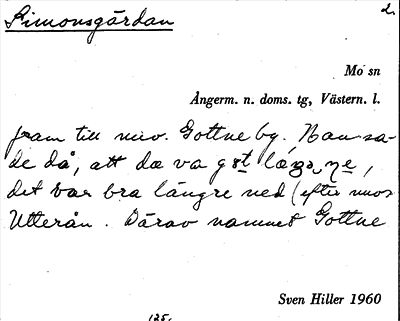 Simonsgårdan
2.
Mo sn
Ångerm. n. doms. tg, Västern. l.
fram till nuv. Gottne by. Han sa-
de då, att dæ va gott
det var bra längre ned (efter nuv
Utterån. Därav namnet Gottne
Sven Hiller 1960
125.